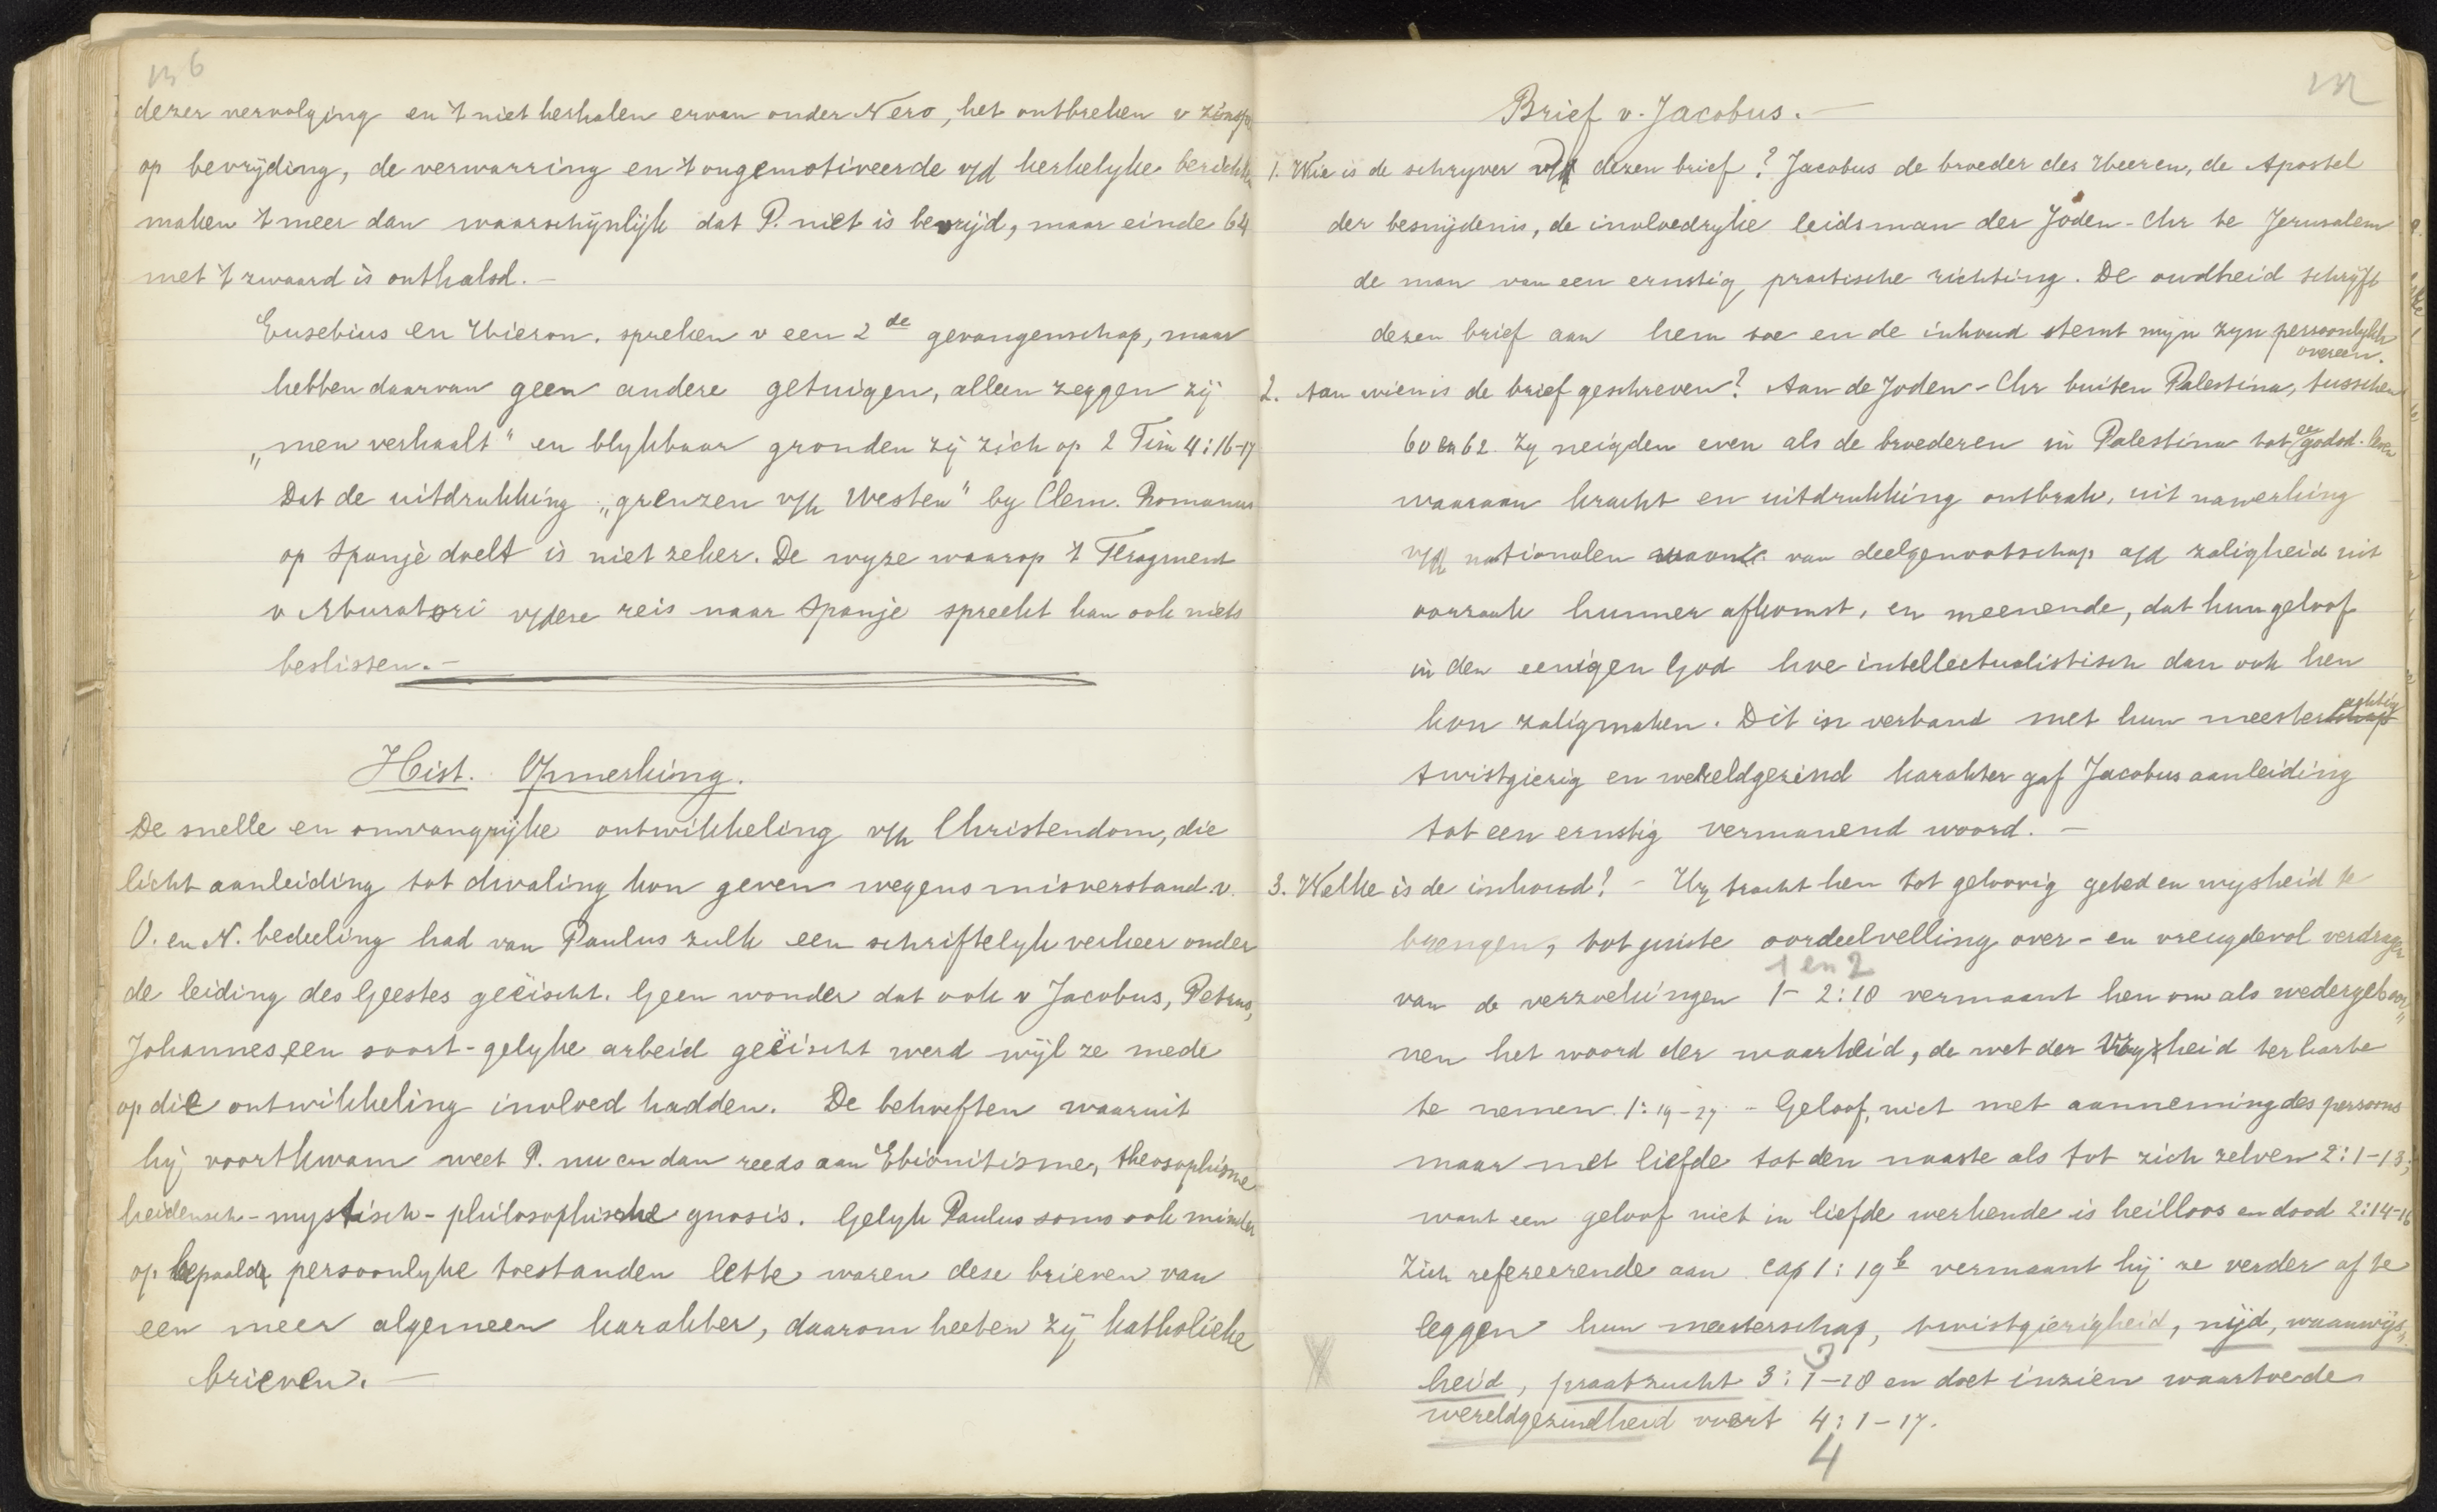 136
dezer vervolging en 't niet herhalen ervan onder Nero, het ontbreken v
op bevrijding, de verwarring en 't ongemotiveerde v/d kerkelyke berichten
maken 't meer dan waarschijnlijk dat P. niet is bevrijd, maar einde 64
met 't zwaard is onthalsd. —
Eusebius en Hieron. spreken v een 2de gevangenschap, maar
hebben daarvan geen andere getuigen, alleen zeggen zij
„men verhaalt" en blykbaar gronden zij zich op 2 Tim 4:16-17
Dat de uitdrukking „grenzen v/h Westen" by Clem. Romanus
op Spanje doelt is niet zeker. De wyze waarop 't Fragment
v Muratori v/deze reis naar Spanje spreekt kan ook niets
beslissen. —
Hist. Opmerking.
De snelle en omvangrijke ontwikkeling v/h Christendom, die
licht aanleiding tot dwaling kon geven wegens misverstand v.
O. en N. bedeeling had van Paulus zulk een schriftelyk verkeer onder
de leiding des Geestes geëischt. Geen wonder dat ook v Jacobus, Petrus,
Johannes een soort-gelyke arbeid geëischt werd wijl ze mede
op die ontwikkeling invloed hadden. De behoeften waaruit
hij voortkwam weet P. nu en dan reeds aan Ebionitisme, theosophisme
heidensch-mystisch-philosophische gnosis. Gelyk Paulus soms ook minder
op bepaalde persoonlyke toestanden lette waren deze brieven van
een meer algemeen karakter, daarom heeten zij katholieke
brieven. —
Brief v. Jacobus. —
1. Wie is de schryver v/h dezen brief? Jacobus de broeder des Heeren, de Apostel
der besnijdenis, de invloedryke leidsman der Joden-Chr te Jerusalem
de man van een ernstig, practische richting. De oudheid schrijft
dezen brief aan hem toe en de inhoud stemt mijn zyn persoonlykh
overeen.
2. Aan wien is de brief geschreven? Aan de Joden-Chr buiten Palestina, tusschen
60 en 62. Zy neigden even als de broederen in Palestina tot een godsd. leven
waaraan kracht en uitdrukking ontbrak, uit nawerking
v/d nationalen waan van deelgenootschap a/d zaligheid uit
oorzaak hunner afkomst, en meenende, dat hun geloof
in den eenigen God hoe intellectualistisch dan ook hen
kon zaligmaken. Dit in verband met hun meesterachtig
twistgierig en wereldgezind karakter gaf Jacobus aanleiding
tot een ernstig vermanend woord. —
3. Welke is de inhoud? — Hy tracht hen tot geloovig gebed en wysheid te
brengen, tot juiste oordeelvelling over- en vreugdevol verdragen
1 en 2
van de verzoekingen 1- 2:18 vermaant hen om als wedergeboor„
nen het woord der waarheid, de wet der vryheid ter harte
te nemen 1:19-27 - Geloof, niet met aanneming des persoons
maar met liefde tot den naaste als tot zich zelven 2:1-13;
want een geloof niet in liefde werkende is heilloos en dood 2:14-16
Zich refereerende aan cap 1:19b vermaant hij ze verder af te
leggen hun meesterschap, twistgierigheid, nijd, waanwijs„
3
X heid, praatzucht 3:1-18 en doet inzien waartoe de
wereldgezindheid voert 4:1-17.
4